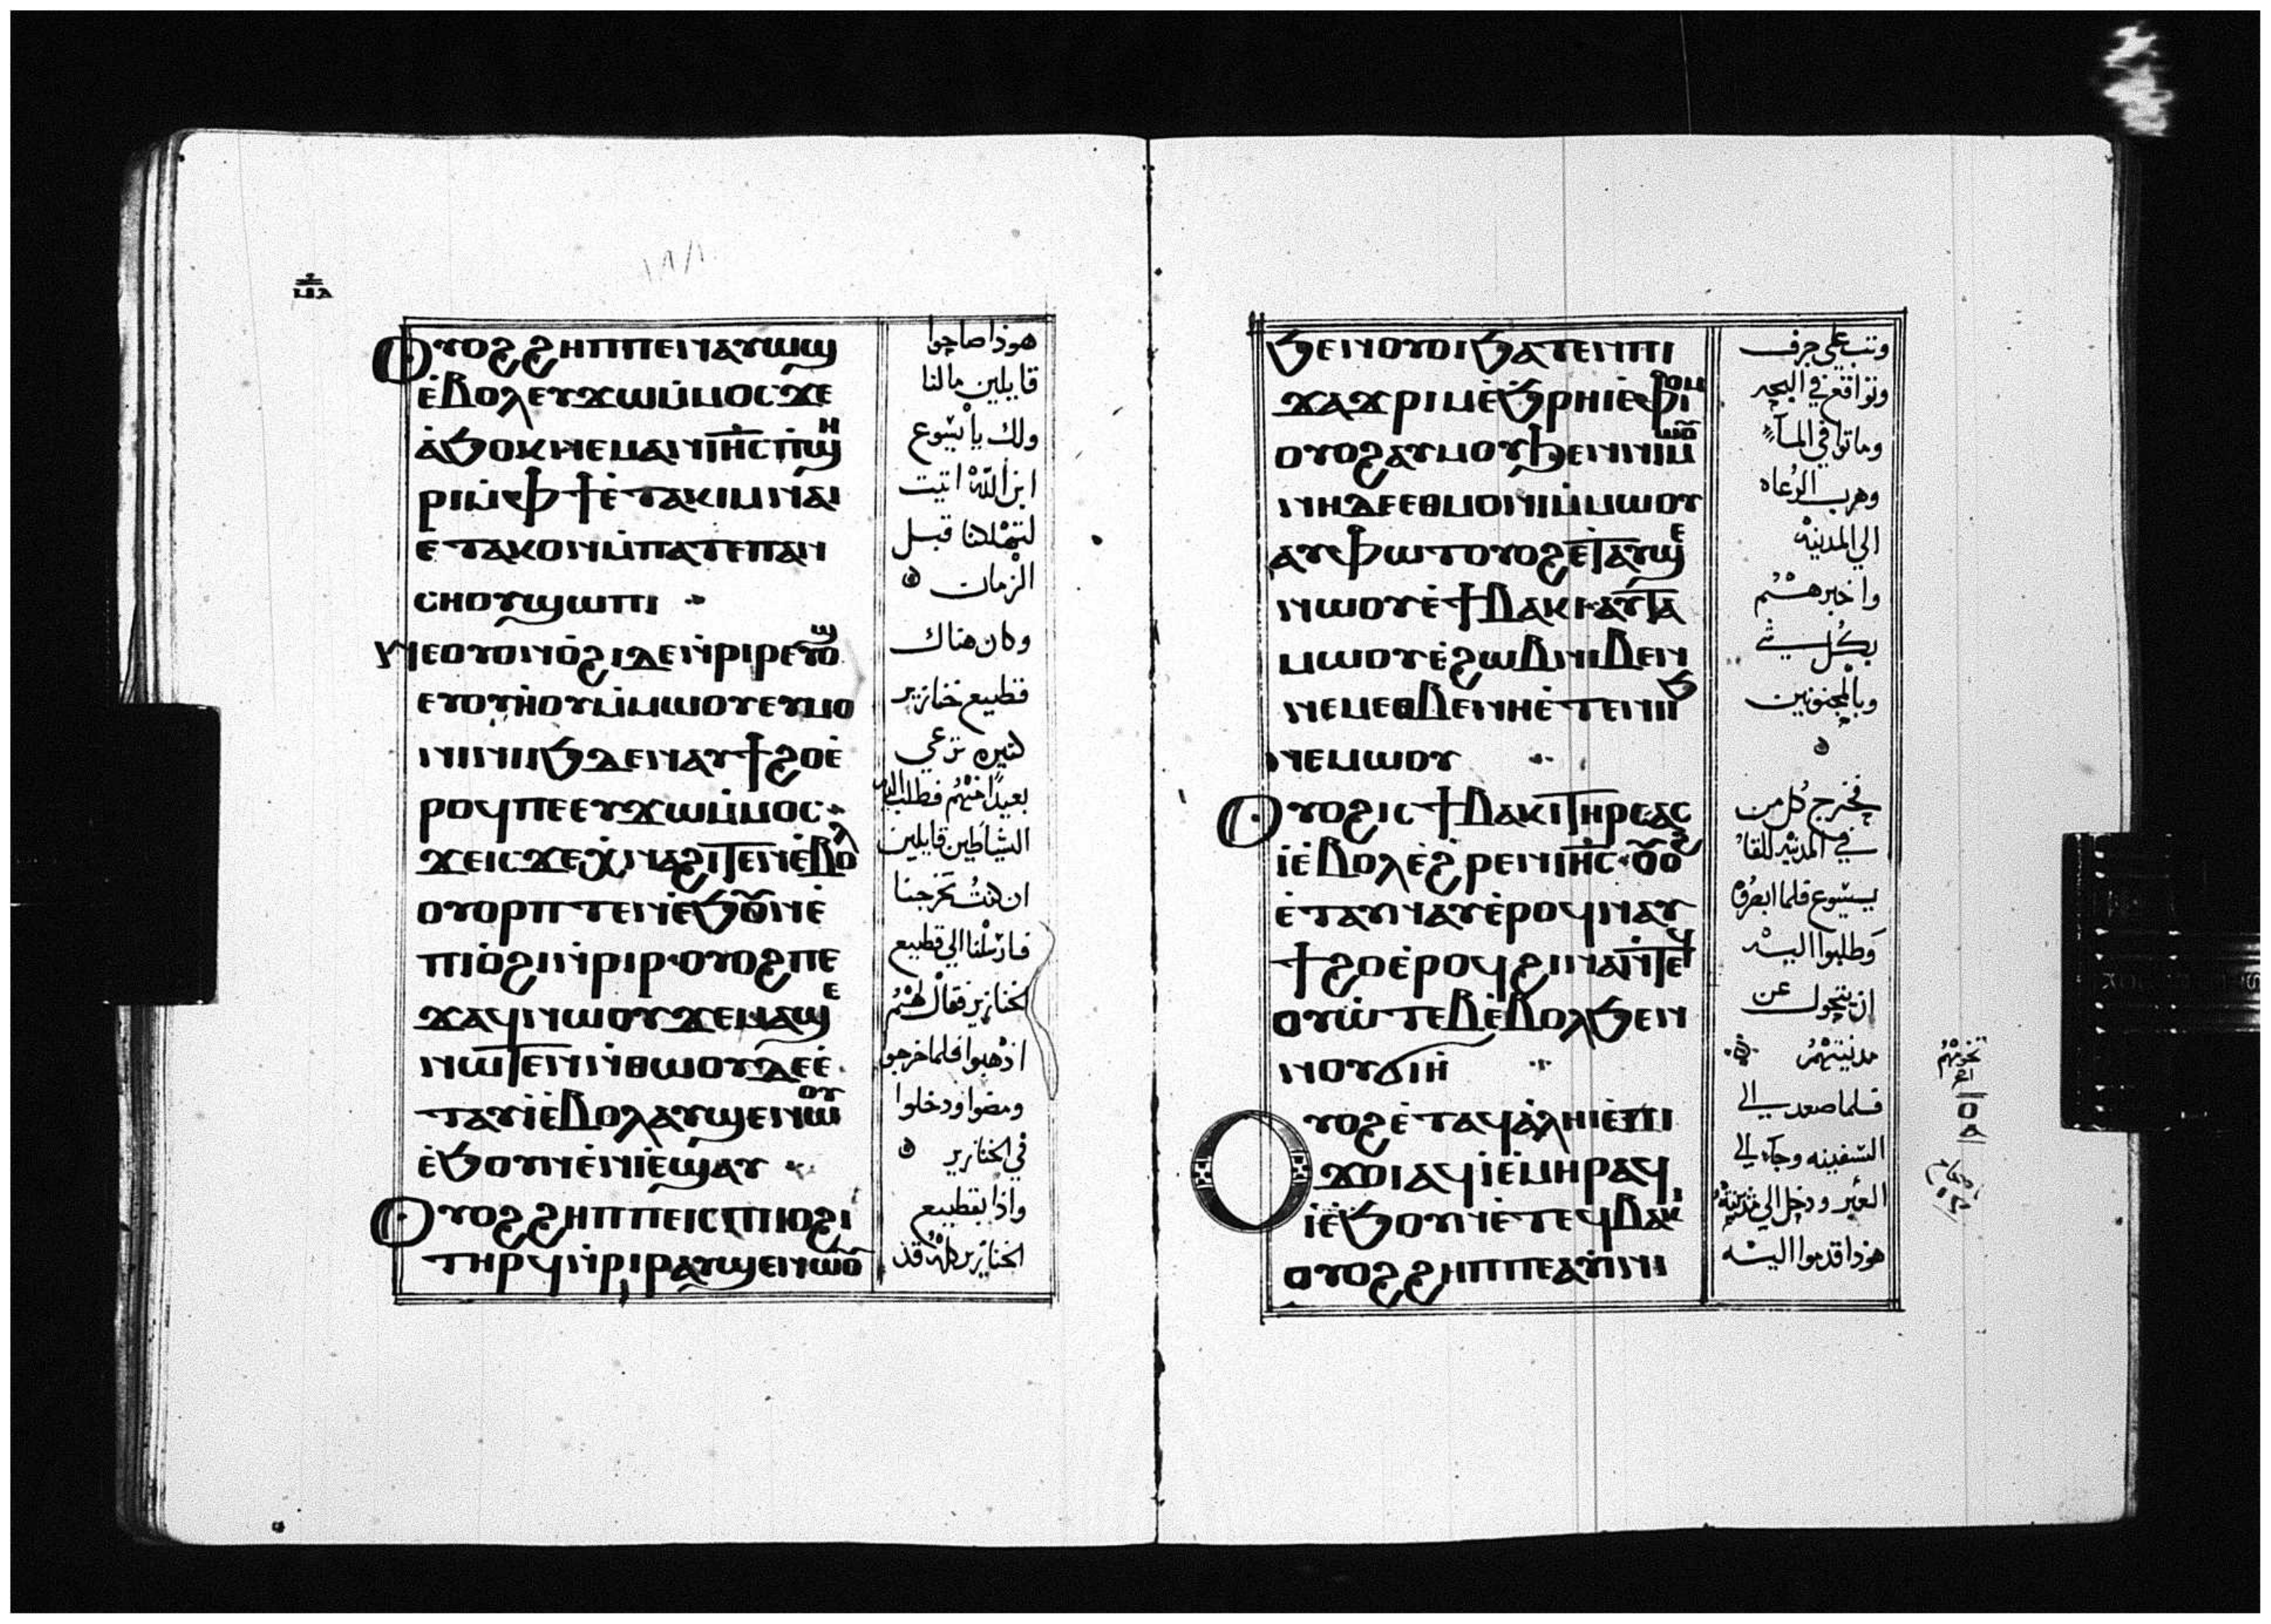 ⲙⲁ
١٨١
Ⲟⲩⲟϩ ϩⲏⲡⲡⲉ ⲛⲁⲩⲱϣ
ⲉ̀ⲃⲟⲗ ⲉⲩϫⲱⲙ̀ⲙⲟⲥ ϫⲉ
ⲁ̀ϧⲟⲕ ⲛⲉⲙⲁⲛ ⲓⲏ̅ⲥ ⲡ̀ϣⲏ
ⲣⲓ ⲙ̀ⲫϯ ⲉ̀ⲧⲁⲕⲓ ⲙⲛⲁⲓ
ⲉⲧⲁⲕⲟⲛ ⲙ̀ⲡⲁⲧⲉ ⲡⲁⲛ
ⲥⲏⲟⲩ ϣⲱⲡⲓ
Ⲛⲉ ⲟⲩⲟⲛ ⲟ̀ϩⲓ ⲇⲉ ⲛ̀ⲣⲓⲣ ⲉⲩⲟϣ
ⲉⲩⲟⲩⲏ̀ⲟⲩ ⲙ̀ⲙⲱⲟⲩ ⲉⲩⲙⲟ
ⲛⲓ ⲛⲓⲓϧ ⲇⲉ ⲛⲁⲩϯϩⲟ ⲉ̀
ⲣⲟϥ ⲡⲉ ⲉⲩϫⲱⲙ̀ⲙⲟⲥ
ϫⲉ ⲓⲥϫⲉ ⲭ̀ⲛⲁϩⲓⲧⲉⲛ ⲉ̀ⲃⲟⲗ
ⲟⲩⲟⲣⲡⲧⲉⲛ ⲉ̀ϧⲟⲩⲛ ⲉ̀
ⲡⲓⲟ̀ϩⲓ ⲛ̀ⲣⲓⲣ ⲟⲩⲟϩ ⲡⲉ
ϫⲁϥ ⲛⲱⲟⲩ ϫⲉ ⲙⲁϣⲉ
ⲛⲱⲧⲉⲛ ⲛ̀ⲑⲱⲟⲩ ⲇⲉ ⲉ̀
ⲧⲁⲩⲓ̀ ⲉ̀ⲃⲟⲗ ⲁⲩϣⲉ ⲛⲱⲟⲩ
ⲉ̀ϧⲟⲩⲛ ⲉ̀ⲛⲓⲉ̀ϣⲁⲩ
Ⲟⲩⲟϩ ϩⲏⲡⲡⲉ ⲓⲥ ⲡⲓⲟϩⲓ
ⲧⲏⲣϥ ⲛ̀ⲣⲓⲣ ⲁⲩϣⲉⲛⲱⲟⲩ
هوذا صاحوا
قايلين مالنا
ولك يا يسوع
ابن الله اتيت
لتهلكنا قبل
الزمان
وكان هناك
قطيع خنازير
كثيره ترعي
بعيدًا منهم فطلب اليه
الشياطين قايلين
ان كنت تخرجنا
فارسلنا الي قطيع
الخنازير فقال لهم
اذهبوا فلما خرجوا
ومضوا ودخلوا
في الخنازير
واذا بقطيع
الخنازير كله قد
ϧⲉⲛ ⲟⲩⲟⲓ ϧⲁⲧⲉⲛ ⲡⲓ
ϫⲁϫⲣⲓⲙ ⲉ̀ϧⲣⲏⲓ ⲉ̀ⲫⲓⲟⲙ
ⲟⲩⲟϩ ⲁⲩⲙⲟⲩ ϧⲉⲛ ⲛⲓⲙⲱⲟⲩ
ⲛⲏ ⲇⲉ ⲉⲑⲙⲟⲛⲓ ⲙ̀ⲙⲱⲟⲩ
ⲁⲩⲫⲱⲧ ⲟⲩⲟϩ ⲉ̀ⲧⲁⲩϣⲉ
ⲛⲱⲟⲩ ⲉ̀ϯⲃⲁⲕⲓ ⲁⲩⲧⲁ
ⲙⲱⲟⲩ ⲉ̀ϩⲱⲃ ⲛⲓⲃⲉⲛ
ⲛⲉⲙ ⲉⲑⲃⲉ ⲛⲏ ⲉ̀ⲧⲉ ⲛⲓⲓϧ
ⲛⲉⲙⲱⲟⲩ
Ⲟⲩⲟϩ ⲓⲥ ϯⲃⲁⲕⲓ ⲧⲏⲣⲥ ⲁⲥ
ⲓ̀ ⲉ̀ⲃⲟⲗ ⲉ̀ϩⲣⲉⲛ ⲓⲏ̅ⲥ ⲟⲩⲟϩ
ⲉ̀ⲧⲁⲩⲛⲁⲩ ⲉ̀ⲣⲟϥ ⲛⲁⲩ
ϯϩⲟ ⲉ̀ⲣⲟϥ ϩⲓⲛⲁ ⲛ̀ⲧⲉϥ
ⲟⲩⲱ̀ⲧⲉⲃ ⲉ̀ⲃⲟⲗ ϧⲉⲛ
ⲛⲟⲩϭⲓⲏ̀
Ⲟⲩⲟϩ ⲉ̀ⲧⲁϥⲁ̀ⲗⲏⲓ ⲉ̀ⲡⲓ
ϫⲟⲓ ⲁϥⲓ̀ ⲉ̀ⲙⲏⲣ ⲁϥ
ⲓ̀ ⲉ̀ϧⲟⲩⲛ ⲉ̀ⲧⲉϥⲃⲁⲕⲓ
ⲟⲩⲟϩ ϩⲏⲡⲡⲉ ⲁⲩⲓ̀ⲛⲓ
وثب علي جرف
وتواقع في البحر
وماتوا في المآء
وهرب الرعاه
الي المدينه
واخبرهم
بكل شي
وبالمجنونين
فخرج كل من
في المدينه للقاء
يسوع فلما ابصروه
وطلبوا اليه
ان يتحول عن
مدينتهم
فلما صعد الي
السفينه وجآء الي
العبر ودخل الي مدينته
هوذا قدموا اليه
تخومهم